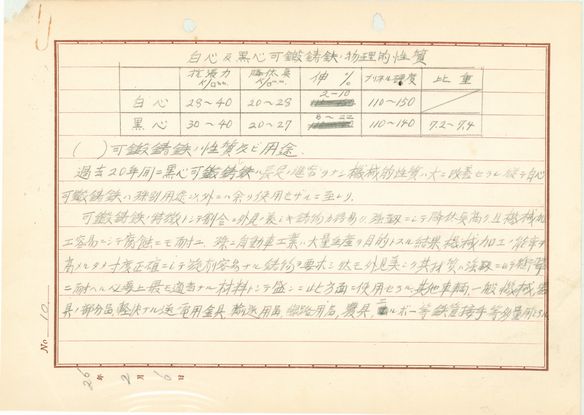 白心及黒心可鍛鋳鉄ノ物理的性質
抗張力 降伏点 伸 % ブリネル硬度 比重
白心 28~40 20~28 2-10 110~150
黒心 30~40 20~27 8~22 110~140 7.2~7.4
( )可鍛鋳鉄ノ性質及ビ用途.
過去20年間ニ黒心可鍛鋳鉄ハ長足ノ進歩ヲナシ機械的性質ハ大ニ改善セラレ従テ白心
可鍛鋳鉄ハ特別用途以外ニハ余リ使用セザルニ至レリ.
可鍛鋳鉄ノ特徴トシテ割合ニ外見ノ美シキ鋳物ガ得ラレ 強靱ニシテ降伏点高ク且機械加
工容易ニシテ腐蝕ニモ耐ユ 殊ニ自動車工業ハ大量生産ヲ目的トスル結果機械加工ノ能率ヲ
高メルタメ寸度正確ニシテ切削容易ナル鋳物ヲ要求シ然モ外見美シク其材質ハ強靱ニシテ衝撃
ニ耐ヘル必要上最モ適当ナル材料トシテ盛ンニ此方面ニ使用セラル 其他車輌、一般機械、器
具ノ部分品 軽快ナル送電用金具 輸送用品 農具 ボー等鉄管接手等
No 10
26年 2月 6日